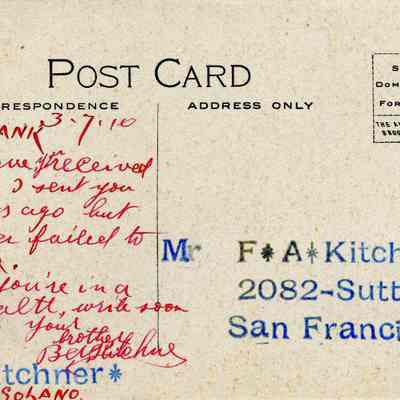 POST CARD
RESPONDENCE
ADDRESS ONLY
S
DOM
FOR
THE A
BROO
ANK 3-7,10
ave you received
I sent you
s ago but
er failed to
you're in a
ealth, write soon
your
brother
Mr F*A*Kitch
2082-Sutt
San Franci
tchner*
SOLANO.